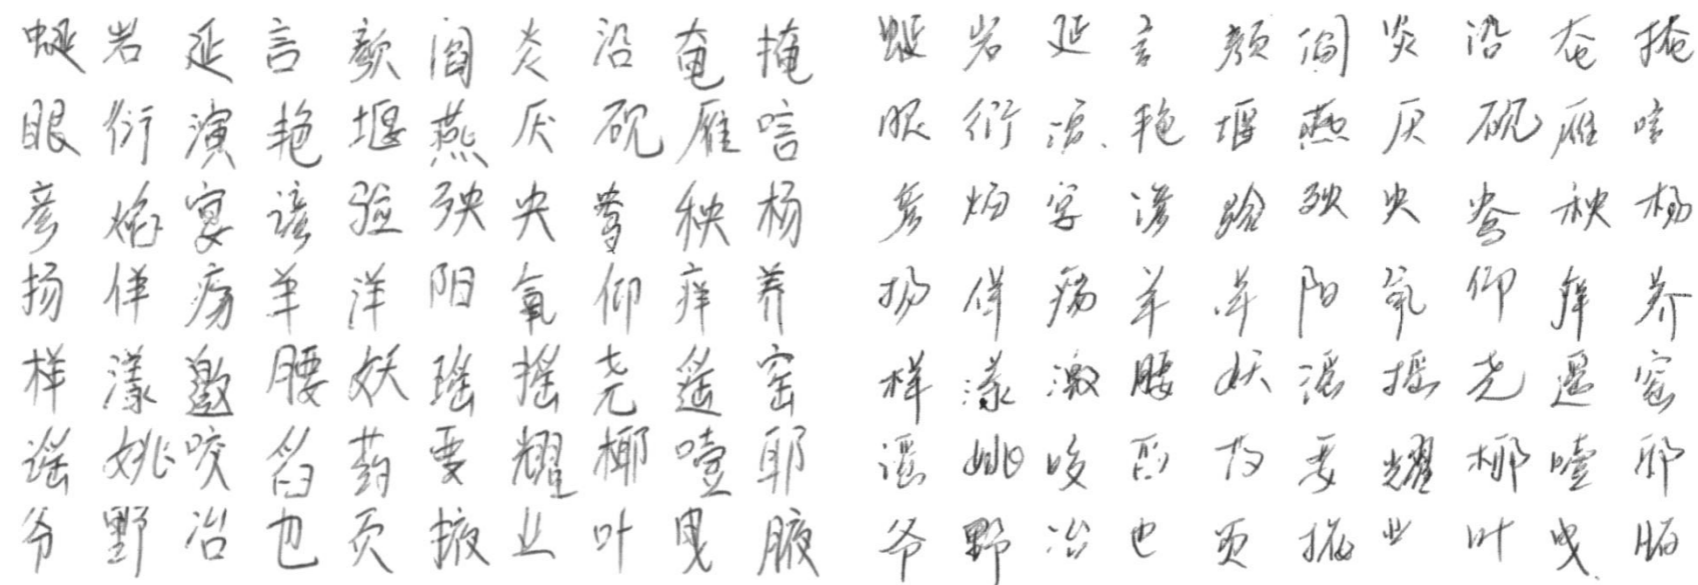 蜒岩延言颜阎炎沿奄掩
眼衍演艳堰燕厌砚雁唁
彦焰宴谚验殃央鸯秧杨
扬佯疡羊洋阳氧仰痒养
样漾邀腰妖瑶摇尧遥窑
谣姚咬舀药要耀椰噎耶
爷野冶也页掖业叶曳腋
蜒岩延言颜阎炎沿奄掩
眼衍演艳堰燕厌砚雁唁
彦焰宴谚验殃央鸯秧杨
扬佯疡羊洋阳氧仰痒养
样漾邀腰妖瑶摇尧遥窑
谣姚咬舀药要耀椰噎耶
爷野冶也页掖业叶曳腋